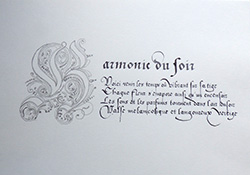 Harmonie du soir
Voici venir les temps où vibrant sur sa tige
Chaque fleur s'évapore ainsi qu'un encensoir
Les sons et les parfums tournent dans l'air du soir
Valse mélancolique et langoureux vertige